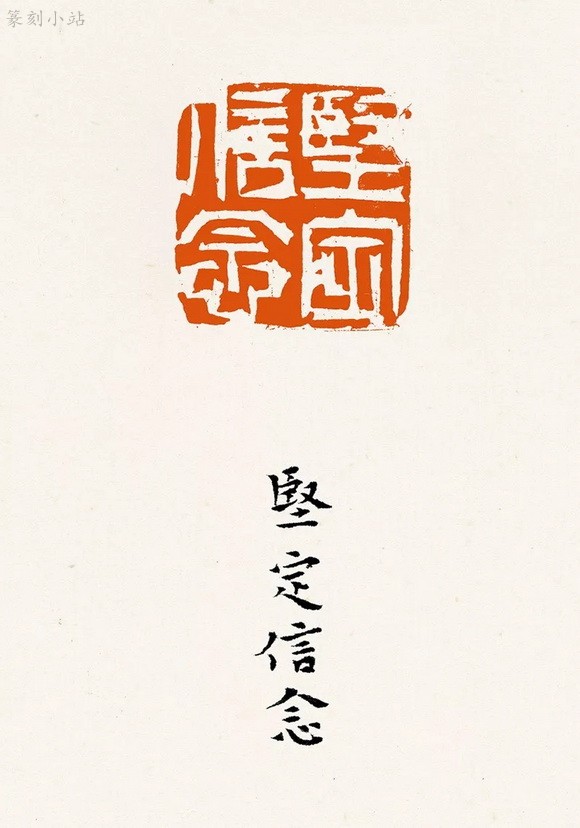 篆刻小站
堅定
信念
堅定信念